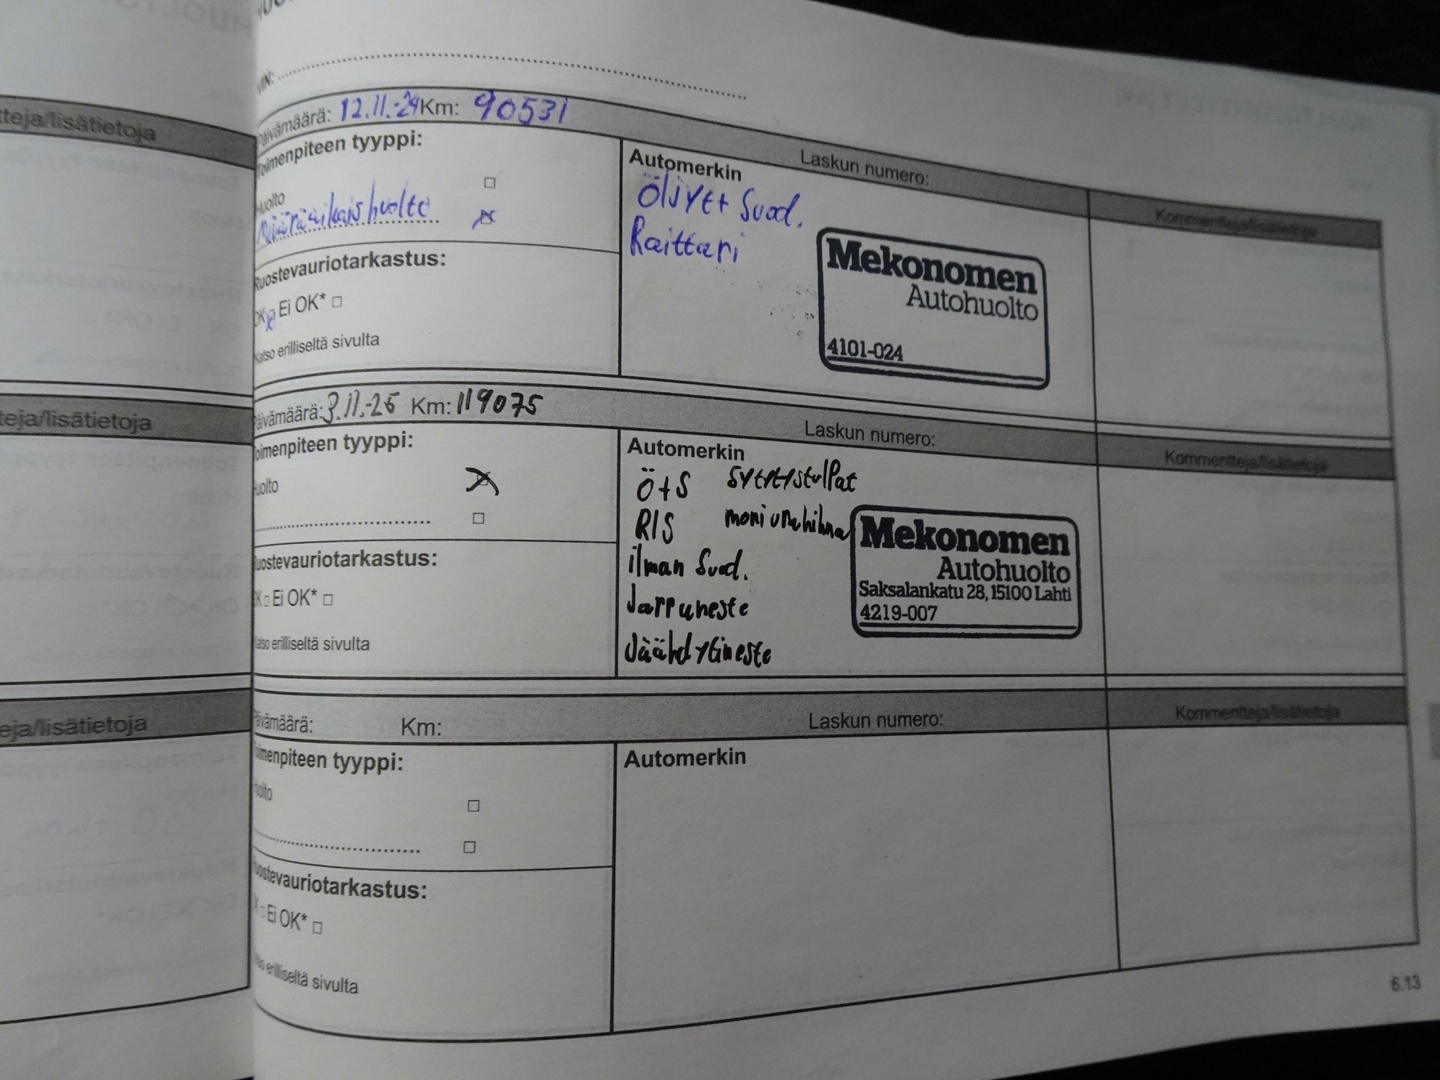 VIN:
Päivämäärä: 12.11.-24 Km: 90531
Laskun numero:
Kommentteja/lisätietoja
Toimenpiteen tyyppi:
Huolto
Määräaikaishuolto
Ruostevauriotarkastus:
OK Ei OK*
Katso erilliseltä sivulta
Automerkin
Öljyt+ Suod.
Raittari
Mekonomen
Autohuolto
4101-024
Päivämäärä: 3.11.-25 Km: 119075
Laskun numero:
Kommentteja/lisätietoja
Toimenpiteen tyyppi:
Huolto
Ruostevauriotarkastus:
OK Ei OK*
Katso erilliseltä sivulta
Automerkin
Ö+S sytytystulpat
RIS moniurahihna
ilman Suod.
Jarruneste
Jäähdytineste
Mekonomen
Autohuolto
Saksalankatu 28, 15100 Lahti
4219-007
Päivämäärä: Km:
Laskun numero:
Kommentteja/lisätietoja
Toimenpiteen tyyppi:
Huolto
Ruostevauriotarkastus:
OK Ei OK*
Katso erilliseltä sivulta
Automerkin
6.13
tteja/lisätietoja
teja/lisätietoja
eja/lisätietoja